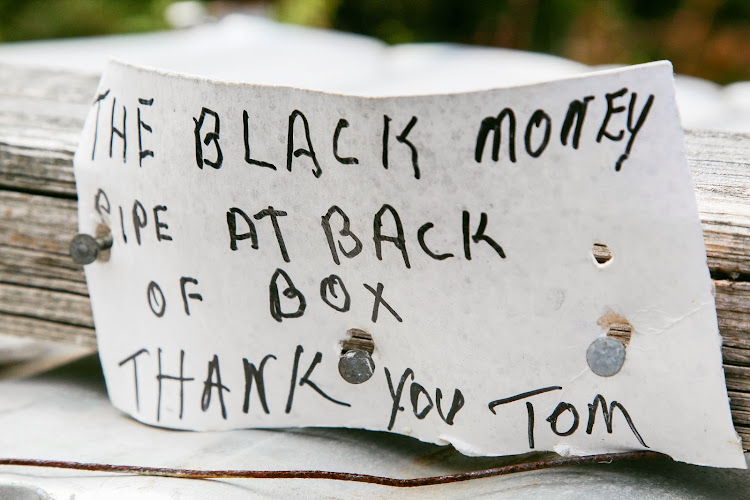 THE BLACK MONEY
PIPE AT BACK
OF BOX
THANK YOU TOM